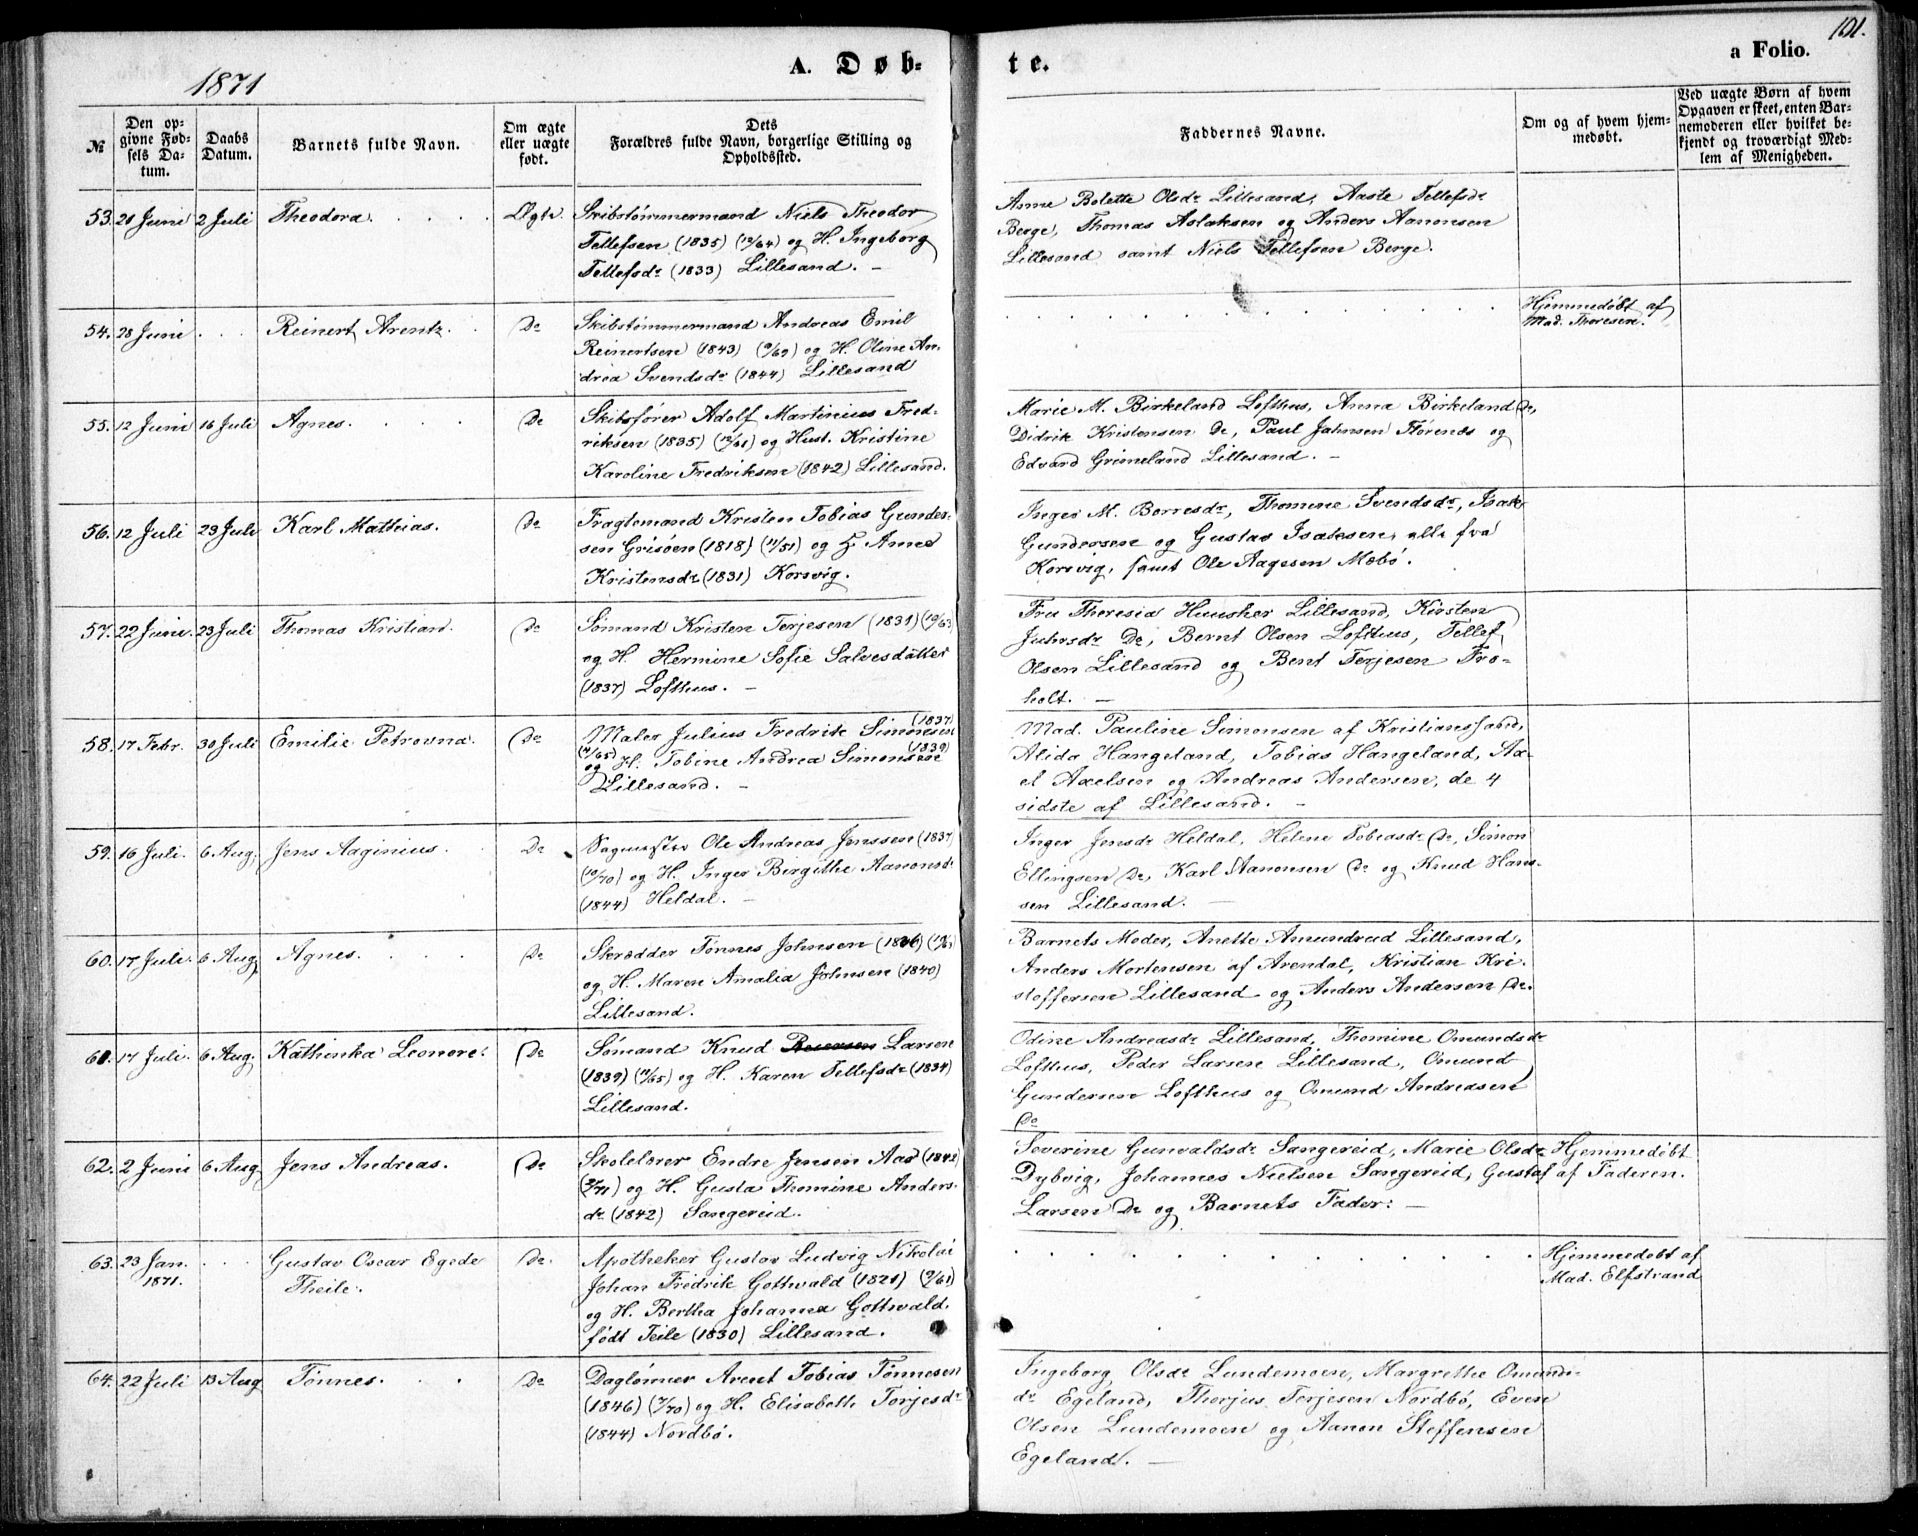 101.
1871
A. Døb-
te.
a Folio.
№
Den op-
givne Fød-
sels Da-
tum.
Daabs
Datum.
Barnets fulde Navn.
Om ægte
eller uægte
født.
Dets
Forældres fulde Navn, borgerlige Stilling og
Opholdssted.
Faddernes Navne.
Om og af hvem hjem-
medøbt.
Ved uægte Børn af hvem
Opgaven er skeet, enten Bar-
nemoderen eller hvilket be-
kjendt og troværdigt Med-
lem af Menigheden.
53. 20 Juni 2 Juli Theodora. Ægte. Skibstømmermand Niels Theodor
Tellefsen (1835) (12/64) og H. Ingeborg
Tellefsdr (1833) Lillesand. —
Anne Bolette Olsdr Lillesand, Aaste Tellefsdr
Berge, Thomas Aslaksen og Anders Aanonsen
Lillesand samt Niels Tellefsen Berge.
54. 28 Juni Reinert Arentz. Do Skibstømmermand Andreas Emil
Reinertsen (1843) (9/69) og H. Oline An-
drea Svendsdr (1844) Lillesand
Hjemmedøbt af
Mad. Thoresen.
55. 12 Juni 16 Juli Agnes. Do Skibsfører Adolf Martinius Fred-
riksen (1835) (12/61) og Hust. Kristine
Karoline Fredriksen (1842) Lillesand.
Marie M. Birkeland Lofthus, Anna Birkeland Do,
Didrik Kristensen Do, Paul Jahnsen Størenæs og
Edvard Grimeland Lillesand. —
56. 12 Juli 23 Juli Karl Mathias. Do Fragtemand Kristen Tobias Gunder-
sen Grisøen (1818) (11/51) og H. Anne
Kristensdr (1831) Korsvig.
Inger M. Borresdr, Thomine Svendsdr, Isak
Gundersen og Gustav Isaksen, alle fra
Korsvig, samt Ole Aagesen Mæbø.
57. 22 Juni. 23 Juli Thomas Kristian. Do Sømand Kristen Terjesen (1831) (10/63)
og H. Hermine Sofie Salvesdatter
(1837) Lofthus. —
Fru Theresia Huusher Lillesand, Kirsten
Juhrsdr Do, Bernt Olsen Lofthus, Tellef
Olsen Lillesand og Bent Terjesen Fro-
holt. —
58. 17 Febr. 30 Juli Emilie Petrovna. Do Maler Julius Fredrik Simonsen (1837)
(11/65) og H. Tobine Andrea Simonsen (1839)
Lillesand. —
Mad. Pauline Simonsen af Kristianssand,
Alida Hangeland, Tobias Hangeland, Ax-
el Axelsen og Andreas Andersen, de 4
sidste af Lillesand. —
59. 16 Juli. 6 Aug. Jens Aaginius. Do Ole Andreas Jenssen (1837)
(10/70) og H. Inger Birgithe Aanonsdr
(1844) Heldal. —
Inger Jensdr Heldal, Helene Tobiasdr Do, Simon
Ellingsen Do, Karl Aanonsen Do og Knud Han-
sen Lillesand. —
60. 17 Juli. 6 Aug. Agnes. Do Skrædder Tønnes Johnsen (1836)
og H. Maren Amalia Johnsen (1840)
Lillesand.
Barnets Moder, Anette Amundrud Lillesand,
Anders Mortensen af Arendal, Kristian Kri-
stoffersen Lillesand og Anders Andersen Do.
61. 17 Juli. 6 Aug. Kathinka Leonore. Do Sømand Knud Larsen
(1839) (11/65) og H. Karen Tellefsdr (1834)
Lillesand.
Odine Andreasdr Lillesand, Thomine Omundsdr
Lofthus, Peder Larsen Lillesand, Omund
Gundersen Lofthus og Omund Andreasen
Do
62. 2 Juni 6 Aug. Jens Andreas. Do Skolelærer Endre Jensen Aas (1842)
(3/71) og H. Gusta Thomine Anders-
dr (1842) Sangereid.
Severine Gunvaldsdr Sangereid, Marie Olsdr
Dybvig, Johannes Nielsen Sangereid, Gustaf
Larsen Do og Barnets Fader. —
Hjemmedøbt
af Faderen.
63. 23 Jan.
1871.
Gustav Oscar Egede
Theile.
Do. Apotheker Gustav Ludvig Nikolai
Johan Fredrik Gottwald (1821) (9/61)
og H. Bertha Johanne Gottwald,
født Teile (1830) Lillesand.
Hjemmedøbt af
Mad. Elfstrand
64. 22 Juli 13 Aug Tønnes. Do Daglønner Arent Tobias Tønnesen
(1846) (7/70) og H. Elisabeth Torjesdr
(1844) Nordbø.
Ingeborg Olsdr Lundemoen, Margrethe Omunds-
dr Egeland, Thorjus Terjesen Nordbø, Even
Olsen Lundemoen og Aanon Steffensen
Egeland. —